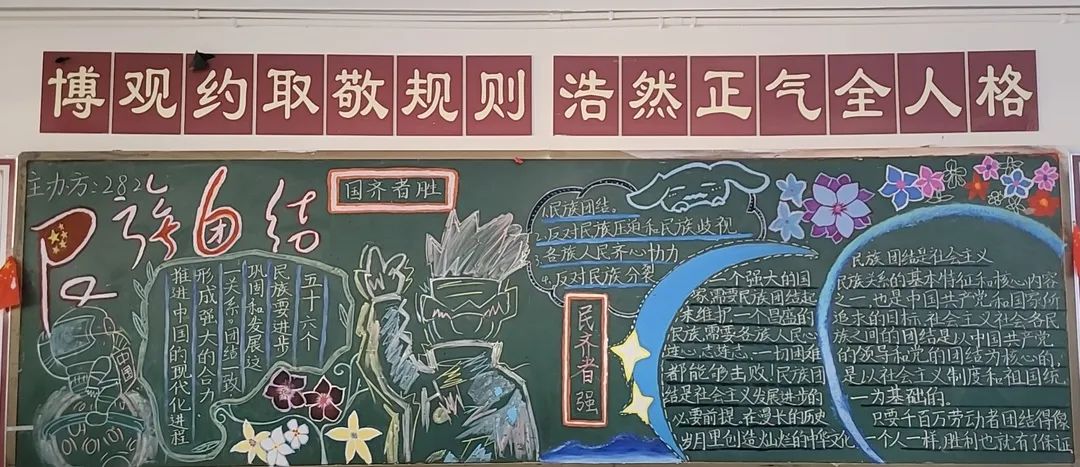 博观约取敬规则 浩然正气全人格
主办方:282
民族团结
国齐者胜
五十六个
民族要进步
巩固和发展这
一关系。团结一致
形成强大的合力,
推进中国的现代化进程
中国
1.民族团结。
2.反对民族压迫和民族歧视
3.各族人民齐心协力
4.反对民族分裂
民齐者强
一个强大的国
家需要民族团结起
来维护,一个昌盛的
民族需要各族人民心
连心,志连志,一切困难
都能够击败!民族团
结是社会主义发展进步的
必要前提,在漫长的历史
岁月里创造灿烂的中华文化
民族团结是社会主义
民族关系的基本特征和核心内容
之一,也是中国共产党和国家所
追求的目标,社会主义社会各民
族之间的团结是以中国共产党
的领导和党的团结为核心的,
是以社会主义制度和祖国统
一为基础的.
只要千百万劳动者团结得像
一个人一样,胜利也就有了保证